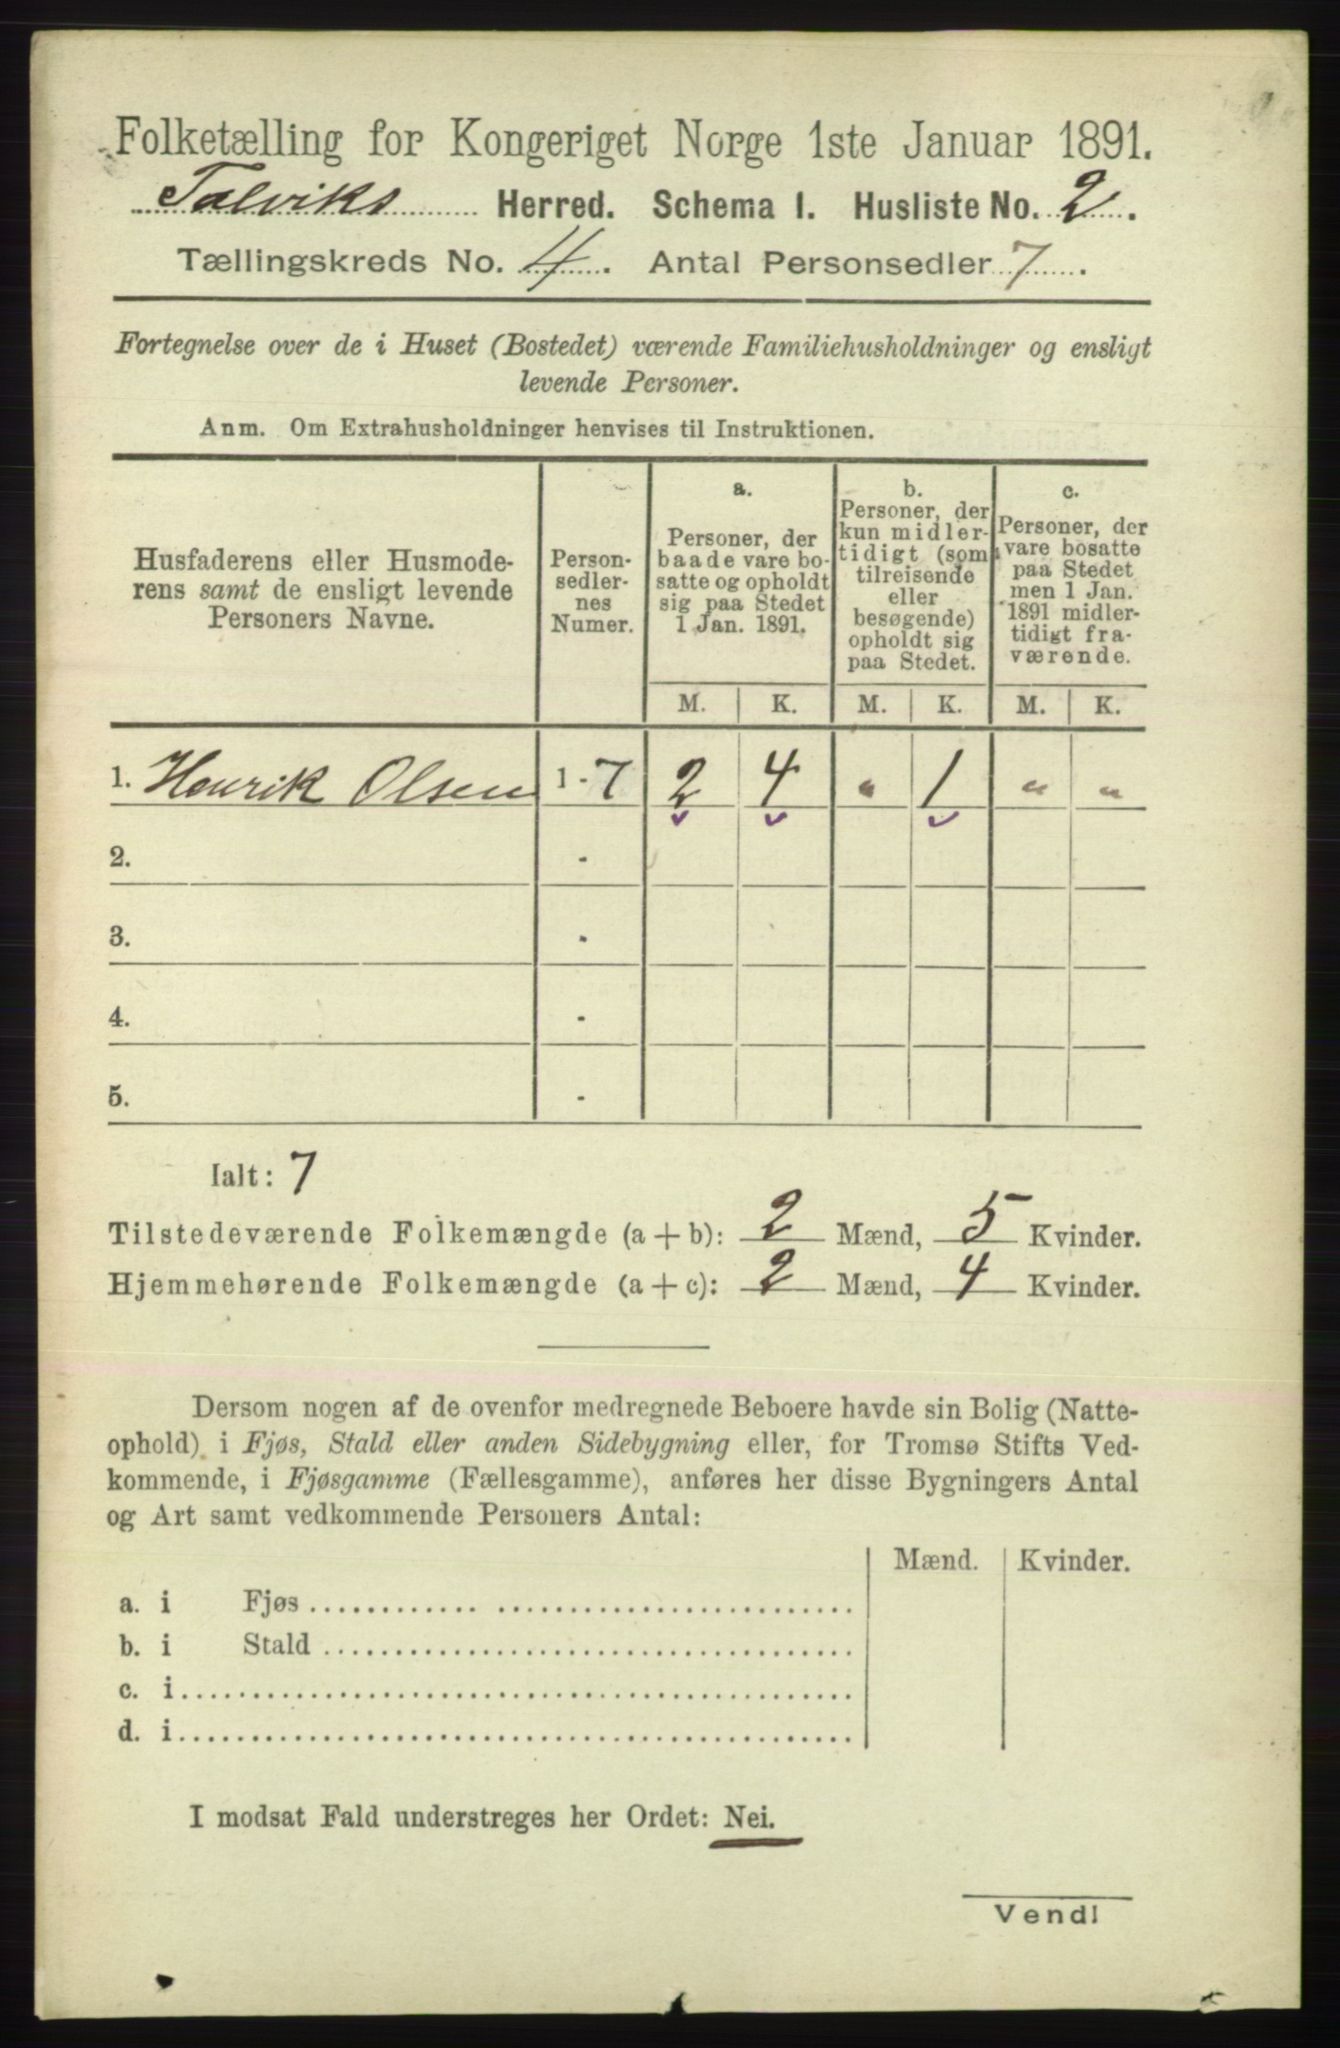 Folketælling for Kongeriget Norge 1ste Januar 1891.
Talviks Herred. Schema I. Husliste No. 2.
Tællingskreds No. 4. Antal Personsedler 7.
Fortegnelse over de i Huset (Bostedet) værende Familiehusholdninger og ensligt
levende Personer.
Anm. Om Extrahusholdninger henvises til Instruktionen.
Husfaderens eller Husmode-
rens samt de ensligt levende
Personers Navne.
Person-
sedler-
nes
Numer.
a.
Personer, der
baade vare bo-
satte og opholdt
sig paa Stedet
1 Jan. 1891.
b.
Personer, der
kun midler-
tidigt (som
tilreisende
eller
besøgende)
opholdt sig
paa Stedet.
c.
Personer, der
vare bosatte
paa Stedet
men 1 Jan.
1891 midler-
tidigt fra-
værende.
M. K. M. K. M. K.
1. Henrik Olsen 1-7 2 4 " 1 " "
2. -
3. -
4. -
5. -
Ialt: 7
Tilstedeværende Folkemængde (a + b): 2 Mænd, 5 Kvinder.
Hjemmehørende Folkemængde (a + c): 2 Mænd, 4 Kvinder.
Dersom nogen af de ovenfor medregnede Beboere havde sin Bolig (Natte-
ophold) i Fjøs, Stald eller anden Sidebygning eller, for Tromsø Stifts Ved-
kommende, i Fjøsgamme (Fællesgamme), anføres her disse Bygningers Antal
og Art samt vedkommende Personers Antal:
Mænd. Kvinder.
a. i Fjøs
b. i Stald
c. i
d. i
I modsat Fald understreges her Ordet: Nei.
Vend!